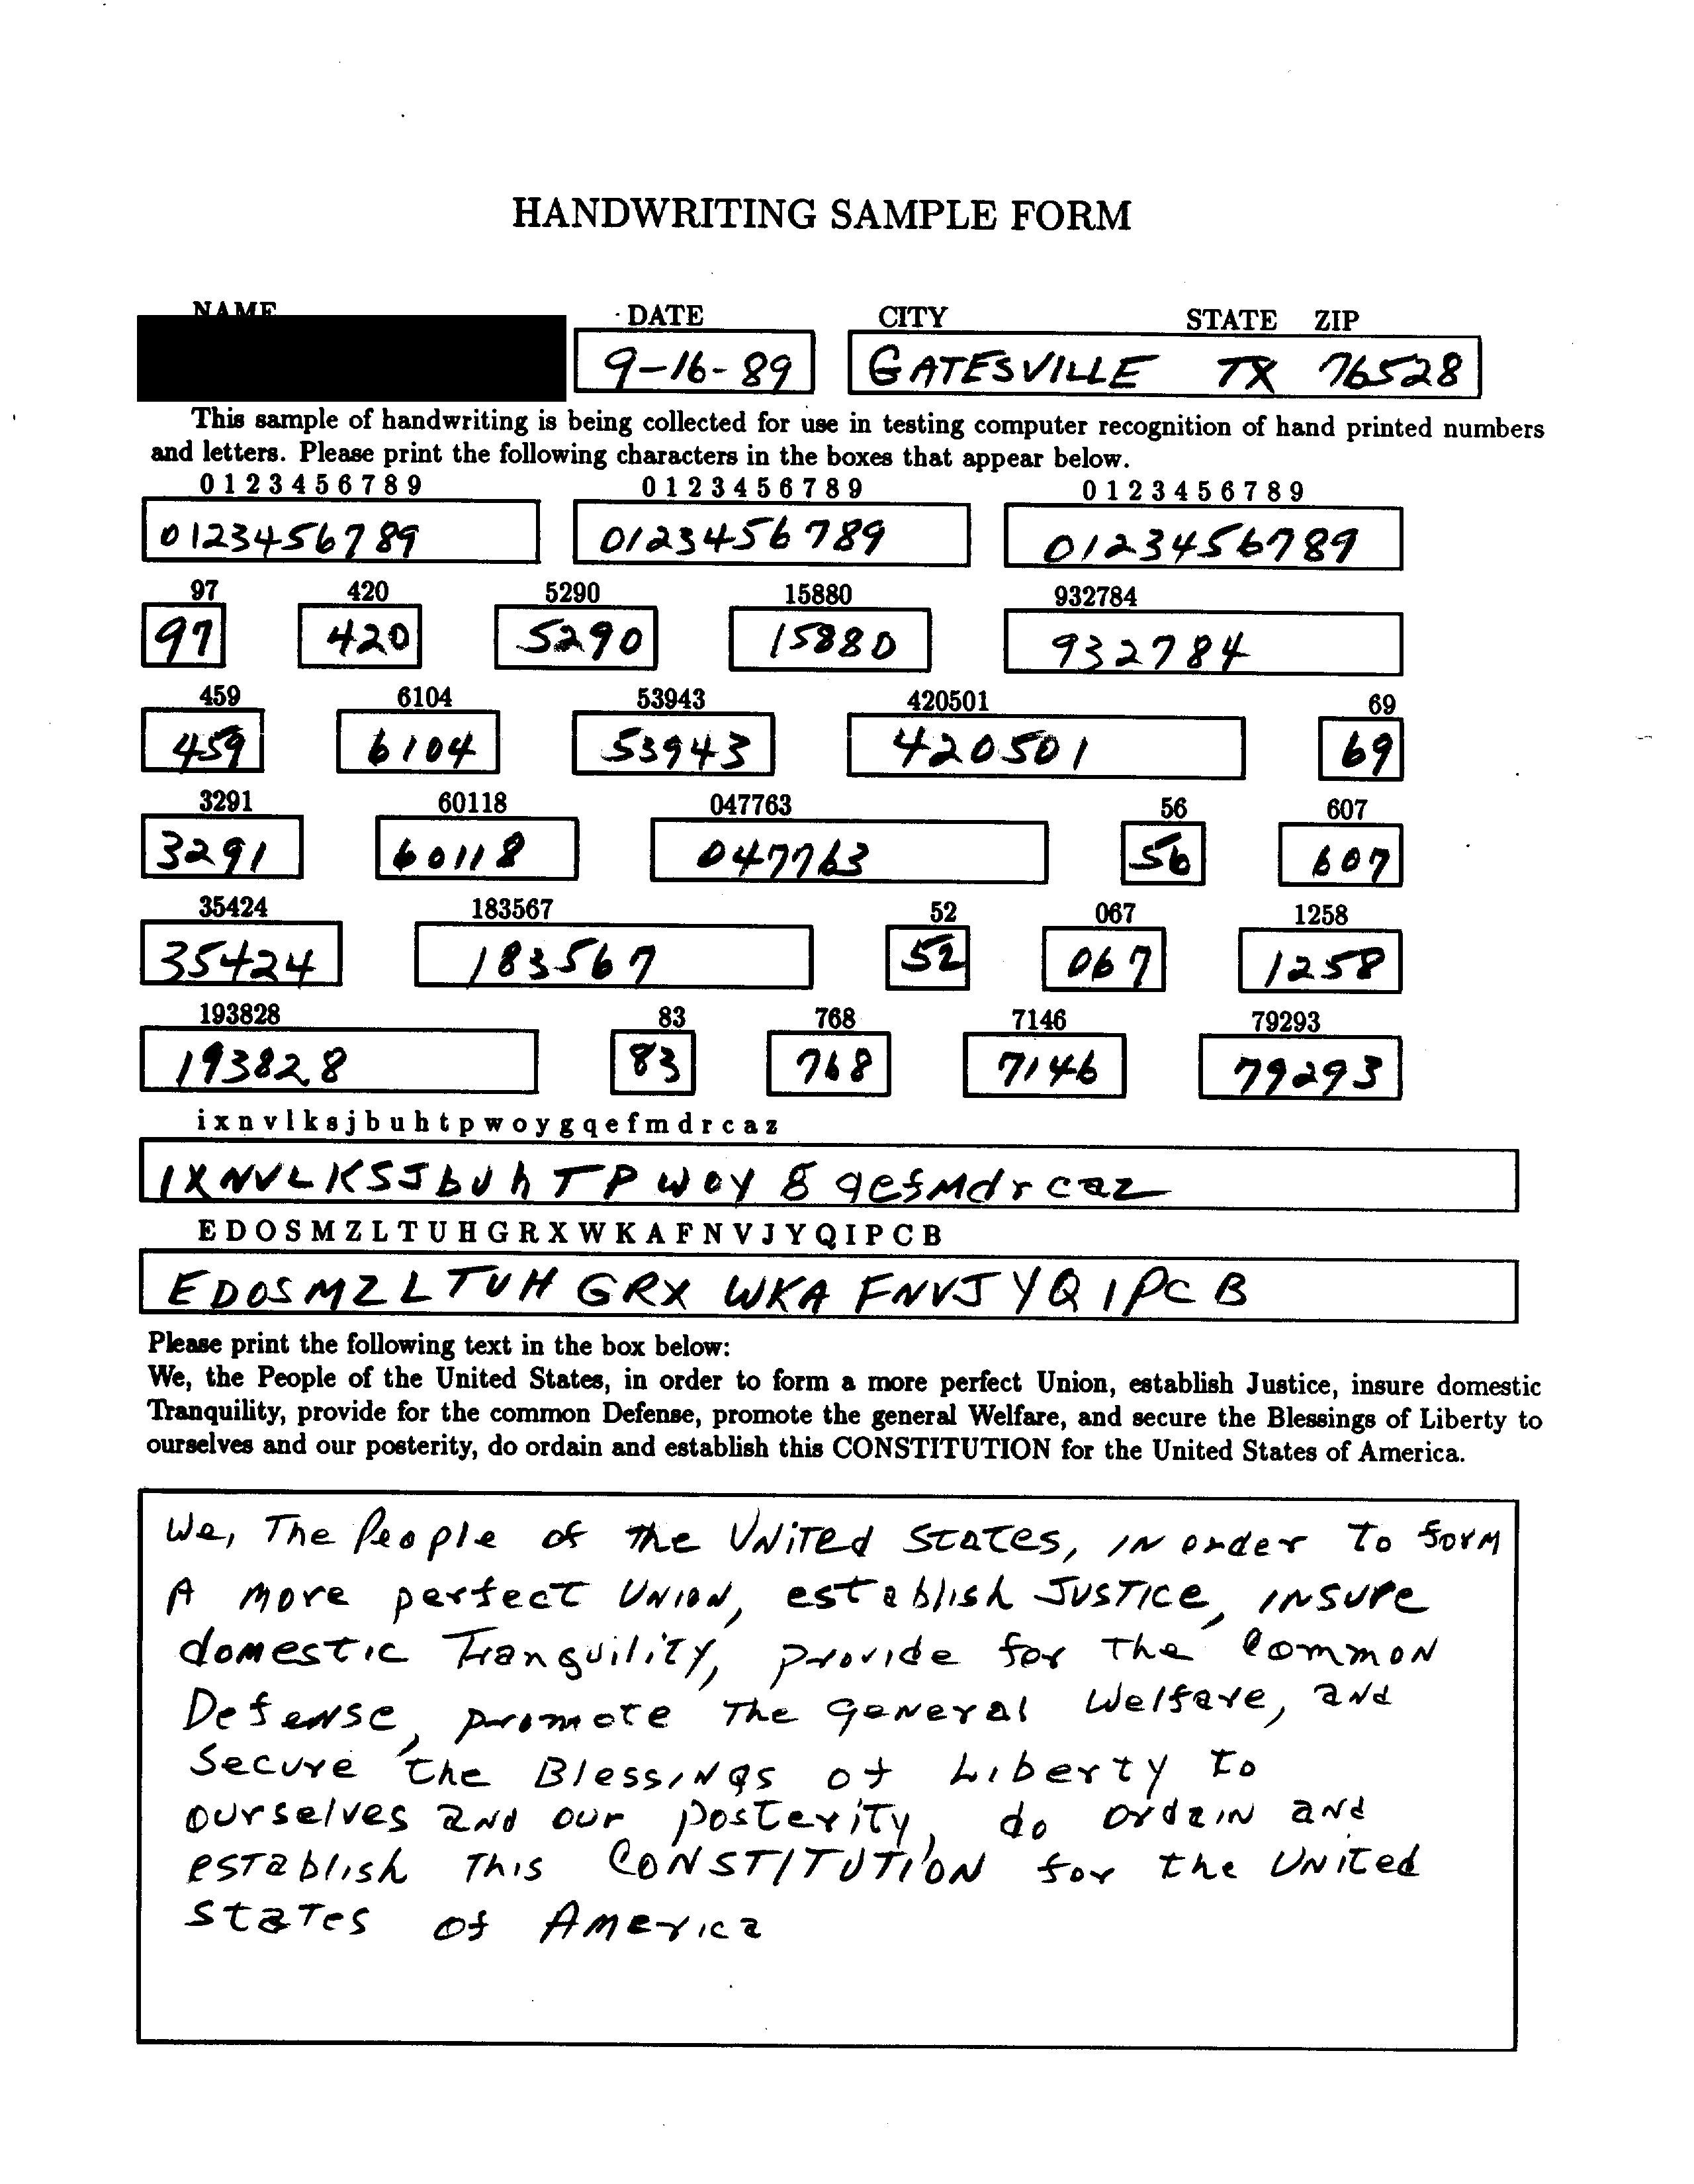 HANDWRITING SAMPLE FORM
NAME DATE CITY STATE ZIP
9-16-89 GATESVILLE TX 76528
This sample of handwriting is being collected for use in testing computer recognition of hand printed numbers
and letters. Please print the following characters in the boxes that appear below.
0 1 2 3 4 5 6 7 8 9 0 1 2 3 4 5 6 7 8 9 0 1 2 3 4 5 6 7 8 9
0123456789 0123456789 0123456789
97 420 5290 15880 932784
97 420 5290 15880 932784
459 6104 53943 420501 69
459 6104 53943 420501 69
3291 60118 047763 56 607
3291 60118 047763 56 607
35424 183567 52 067 1258
35424 183567 52 067 1258
193828 83 768 7146 79293
193828 83 768 7146 79293
i x n v l k s j b u h t p w o y g q e f m d r c a z
IXNVLKSJbUhTPWOY g qefMdrcaz
E D O S M Z L T U H G R X W K A F N V J Y Q I P C B
EDOSMZLTUHGRX WKA FNVJYQIPCB
Please print the following text in the box below:
We, the People of the United States, in order to form a more perfect Union, establish Justice, insure domestic
Tranquility, provide for the common Defense, promote the general Welfare, and secure the Blessings of Liberty to
ourselves and our posterity, do ordain and establish this CONSTITUTION for the United States of America.
We, The People of the UNiTed STATES, IN order To forM
A More perfecT UNION, establish JUSTICE, INSUre
doMestic Tranguility, provide for The Common
Defense, promote The general Welfare, and
Secure the BlessINgs of Liberty to
ourselves and our posterity, do ordaIN and
establish This CONSTITUTION for the UNited
States of AMerica